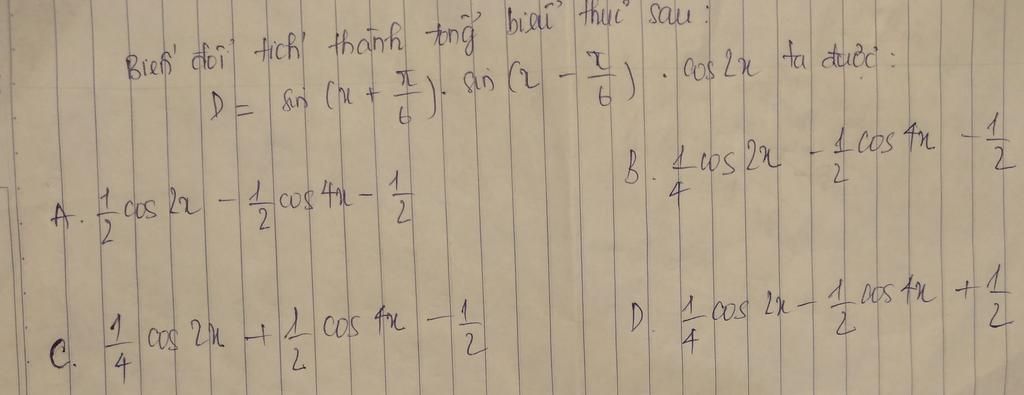 Biến đổi tích thành tổng biểu thức sau:
D = sin (x + π/6). sin (x - π/6) . cos 2x ta được:
A. 1/2 cos 2x - 1/2 cos 4x - 1/2
B. 1/4 cos 2x - 1/2 cos 4x - 1/2
C. 1/4 cos 2x + 1/2 cos 4x - 1/2
D. 1/4 cos 2x - 1/2 cos 4x + 1/2